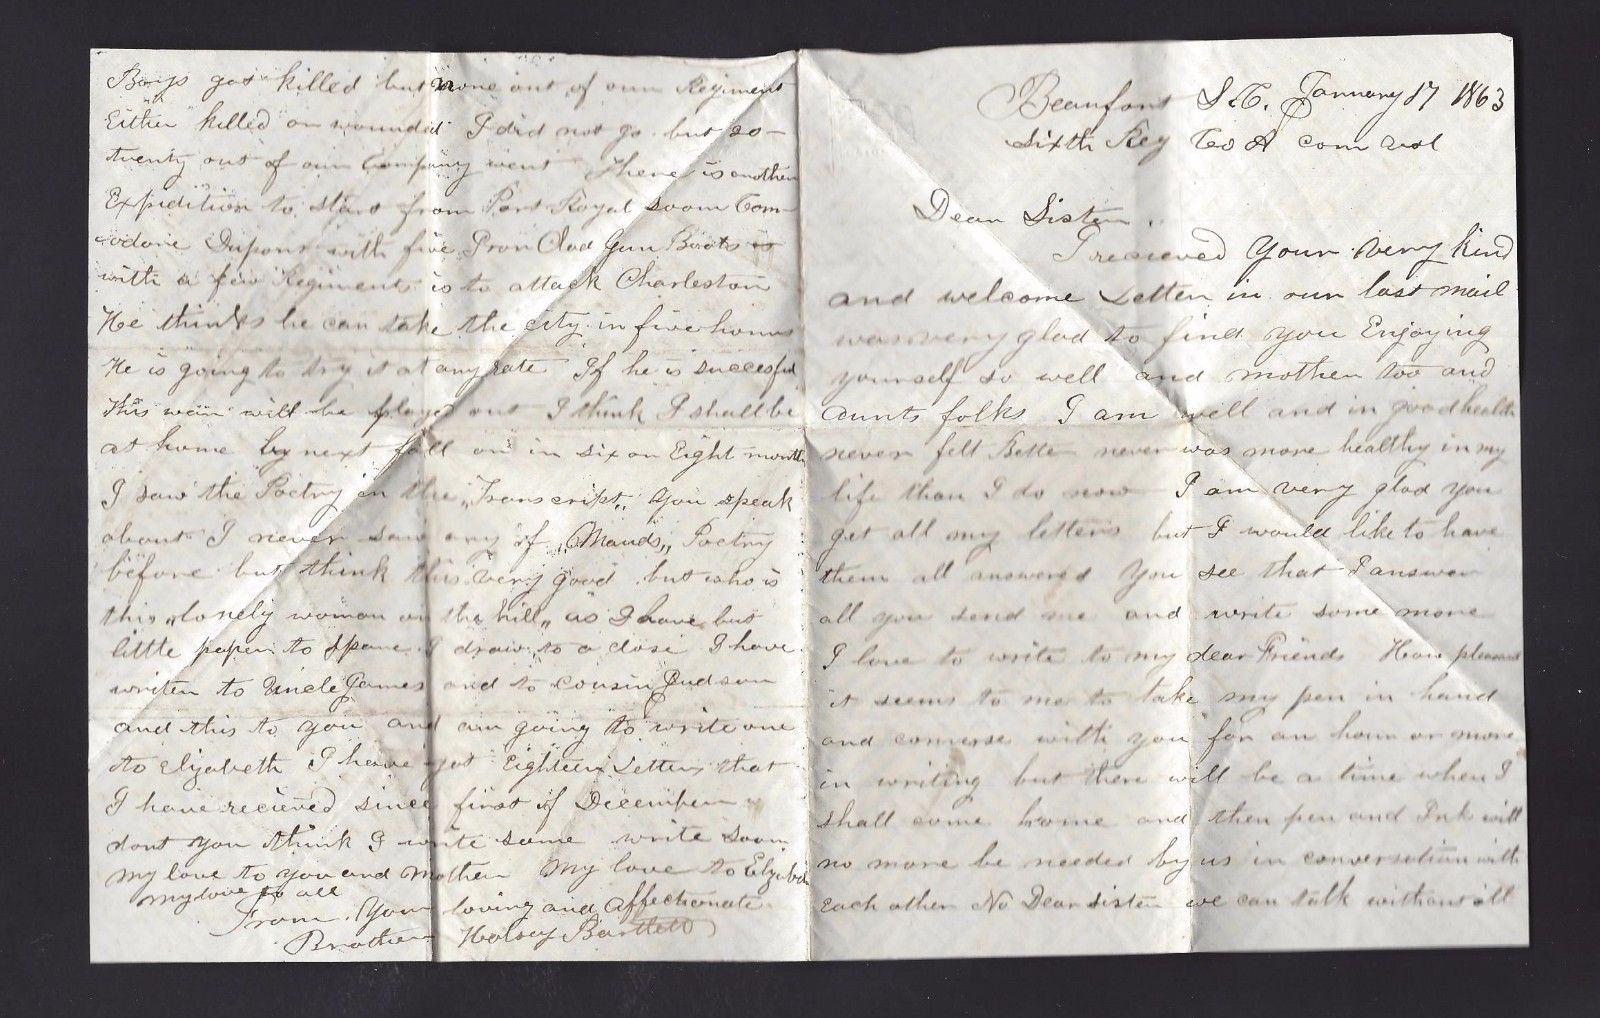 Beaufort S.C. January 17 1863
Sixth Reg Co A conn vol
Dear Sister..
I recieved your very kind
and welcome Letter in our last mail
was very glad to find you Enjoying
yourself so well and mother too and
aunts folks I am well and in good health
never felt Better never was more healthy in my
life than I do now I am very glad you
get all my letters but I would like to have
them all answered You see that I answer
all you send me and write some more
I love to write to my dear Friends How pleasant
it seems to me to take my pen in hand
and converse with you for an hour or more
in writing but there will be a time when I
shall come home and then pen and Ink will
no more be needed by us in conversation with
Each other No Dear sister we can talk without it
Boys got killed but none out of our Regiment
Either killed or wounded I did not go but 20-
twenty out of our Company went There is another
Expidition to start from Port Royal soon Com-
-odore Dupont with five Iron Clad Gun Boats
with a few Regiments is to attack Charleston
He thinks he can take the city in five hours
He is going to try it at any rate If he is succesful
This war will be played out I think I shall be
at home by next fall or in six or Eight month
I saw the Poetry in the „Transcript„ you speak
about I never saw any of „Mauds„ Poetry
before but think this very good but who is
this „lonely woman on the hill„ as I have but
little paper to spare I draw to a close I have
writen to Uncle James and to cousin Judson
and this to you and am going to write one
to Elizabeth I have got Eighteen Letters that
I have recieved since first of December
dont you think I write some write soon
my love to you and Mother My love to Elizabeth
my love to all
From Your loving and affectionate
Brother Halsey Bartlett